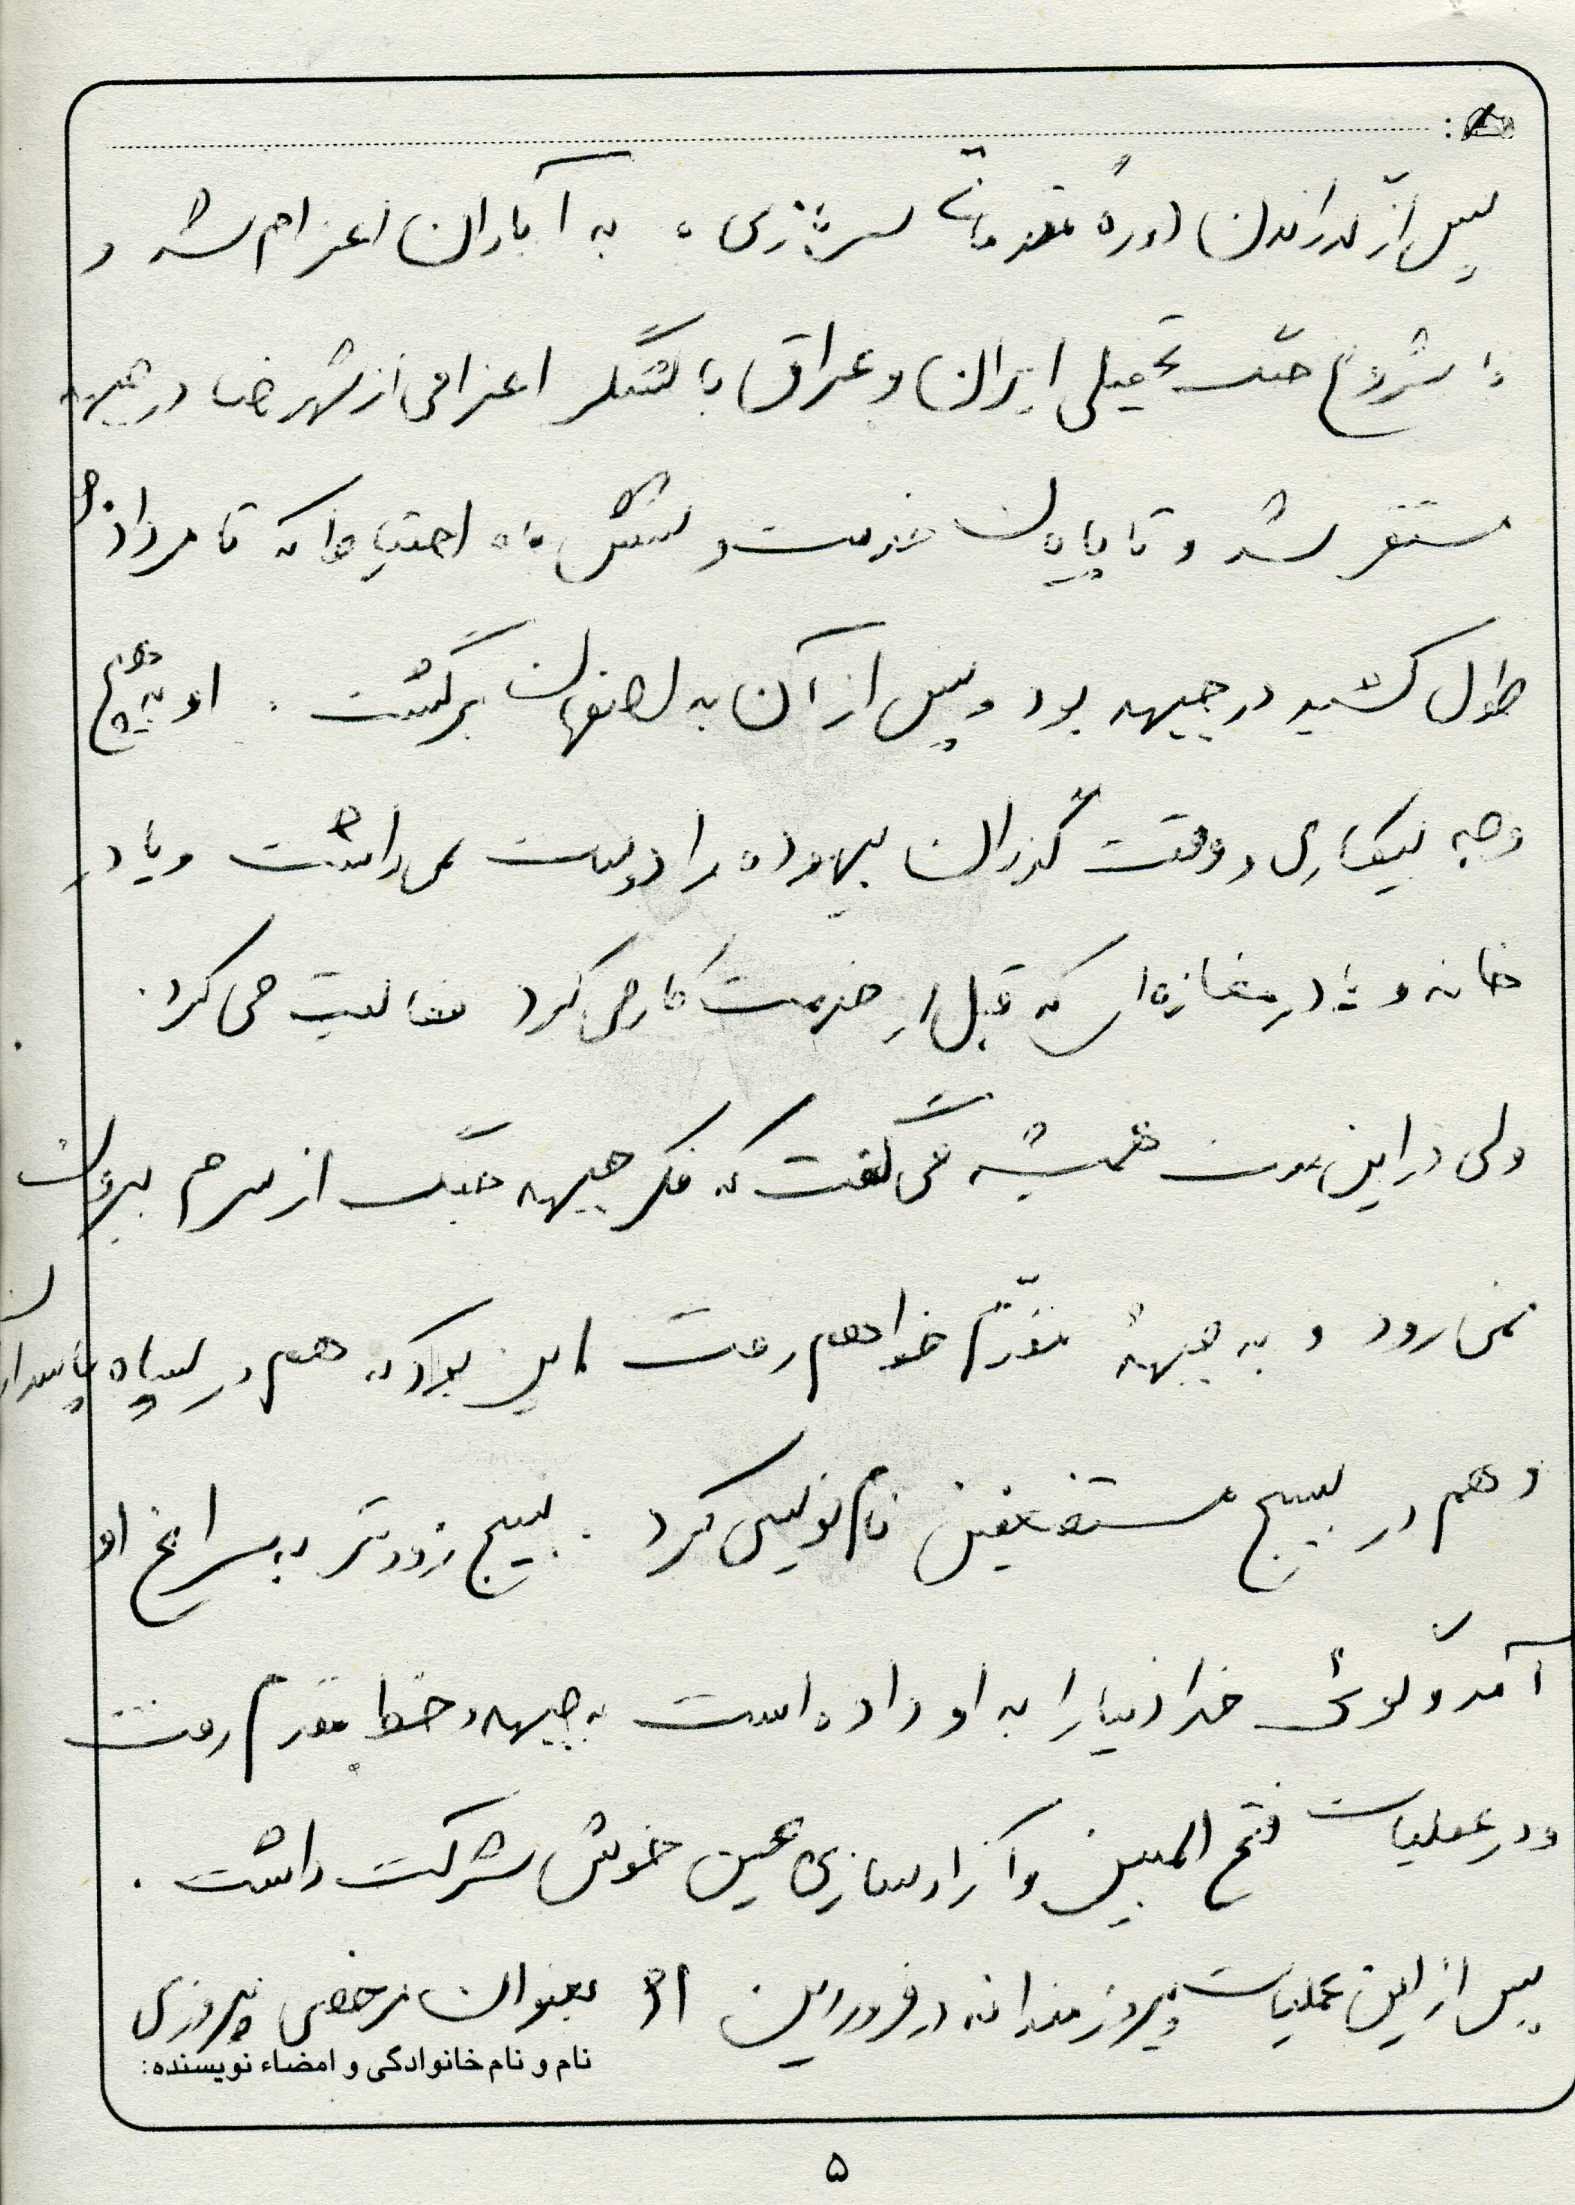 پس از گذراندن دورهٔ مقدماتی سربازی، به آبادان اعزام شد و
با شروع جنگ تحمیلی ایران و عراق با لشگر اعزامی از شهرضا در جبهه
مستقر شد و تا پایان خدمت و شش ماه احتیاط که تا مرداد ۶۰
طول کشید در جبهه بود و پس از آن به اصفهان برگشت. او به هیچ
وجه بیکاری و وقت گذران بیهوده را دوست نمی داشت و یا در
خانه و یا در مغازه ای که قبل از خدمت کار می کرد فعالیت می کرد.
ولی در این مدت همیشه می گفت که فکر جبهه جنگ از سرم بیرون
نمی رود و به جبههٔ مقدّم خواهم رفت این بود که هم در سپاه پاسداران
و هم در بسیج مستضعفین نام نویسی کرد. بسیج زودتر به سراغ او
آمد و گوئی خدا دنیا را به او داده است به جبهه و خط مقدم رفت
و در عملیات فتح المبین و آزادسازی عین خوش شرکت داشت.
پس از این عملیات پیروزمندانه در فروردین ۶۱ بعنوان مرخصی پیروزی
نام و نام خانوادگی و امضاء نویسنده:
۵